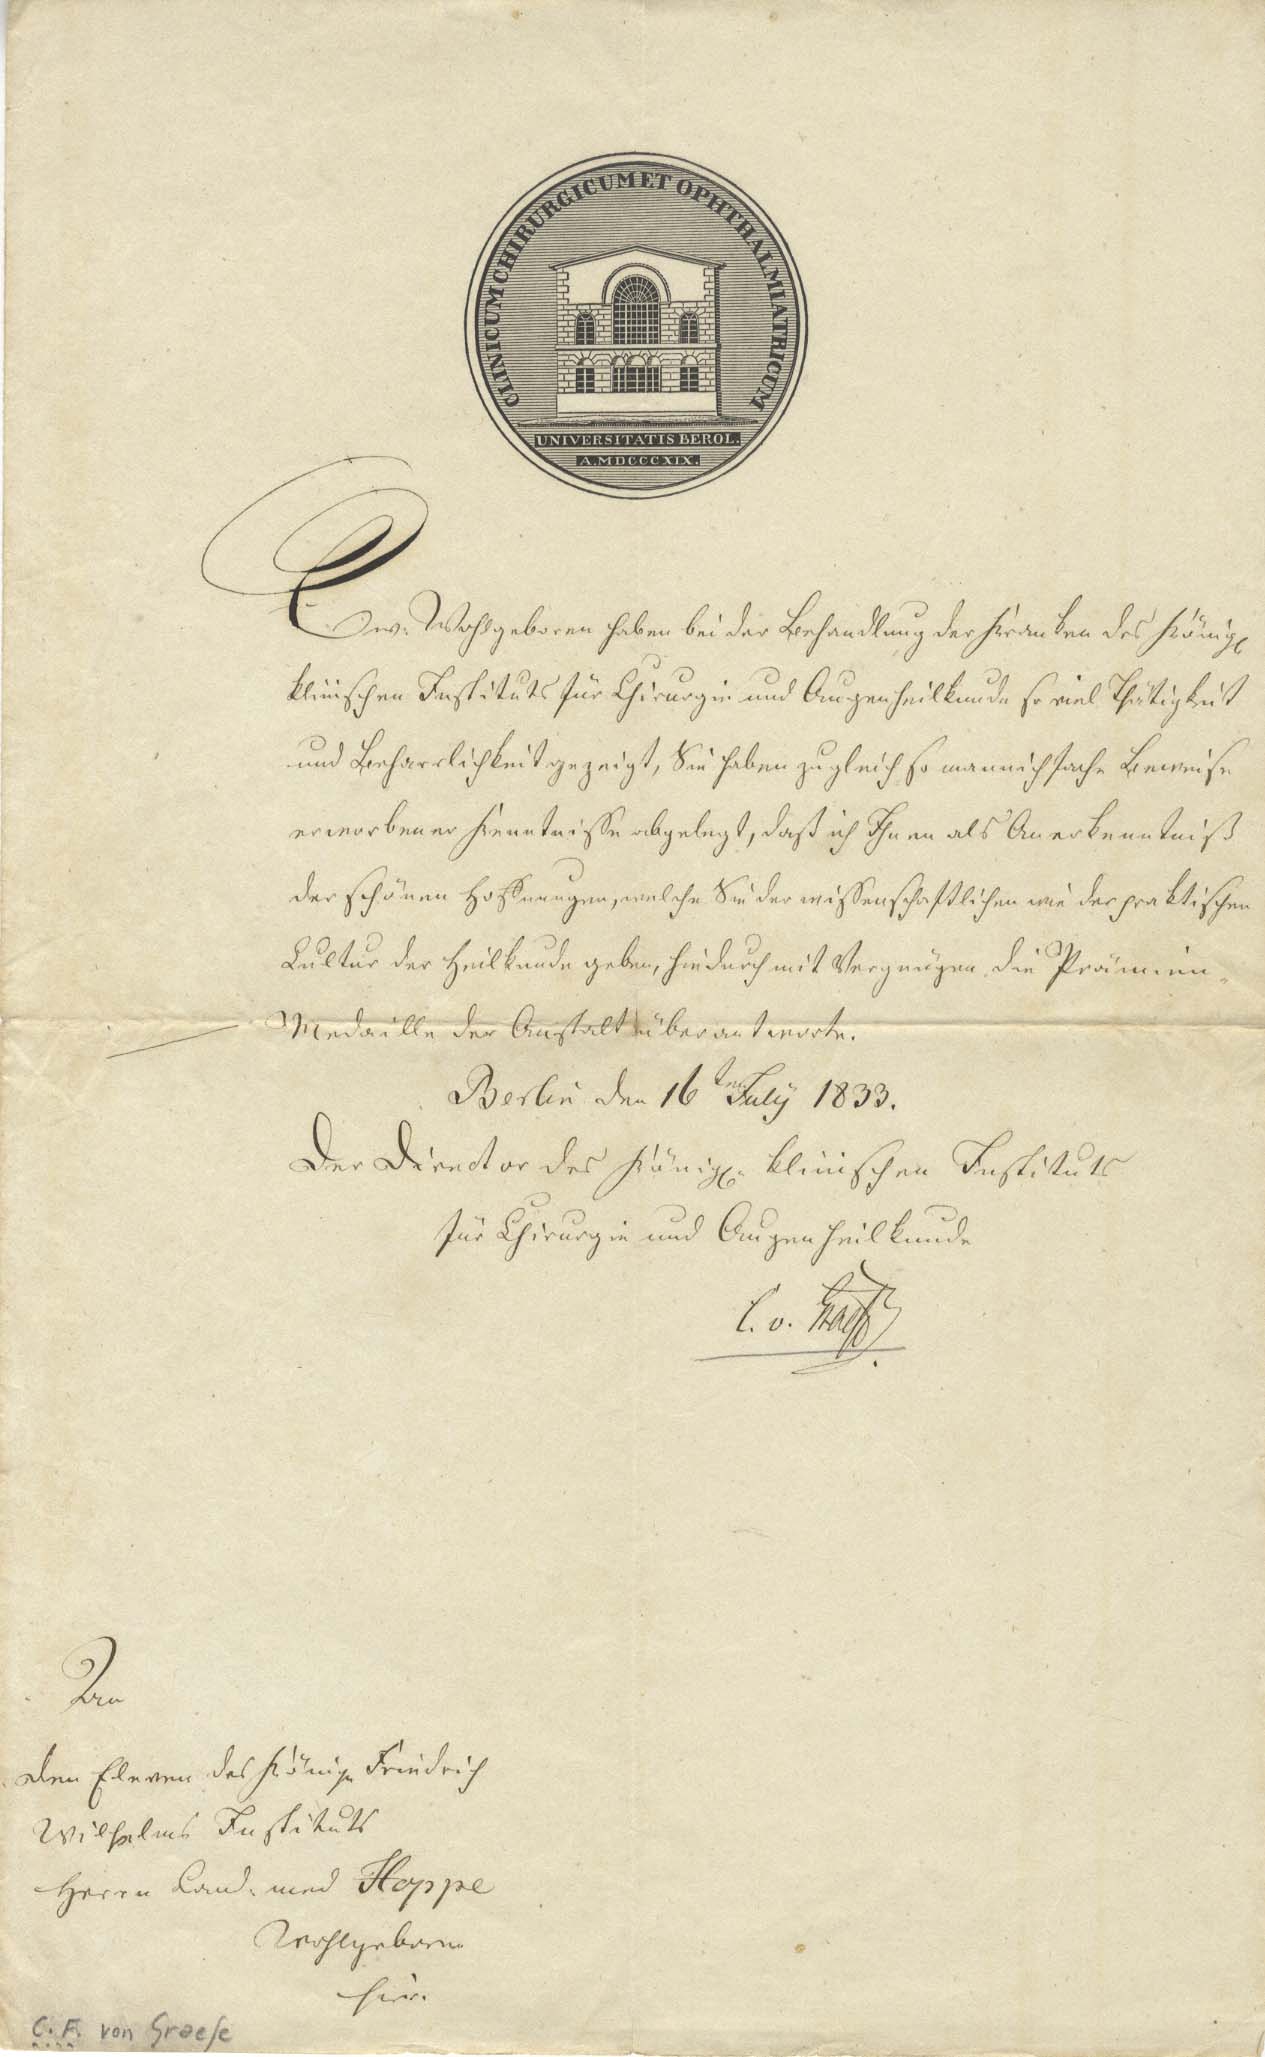 CLINICUM CHIRURGICUM ET OPHTHALMIATRICUM
UNIVERSITATIS BEROL.
A. MDCCCXIX.
Ew. Wohlgeboren haben bei der Behandlung der Kranken des Königl
klinischen Instituts für Chirurgie und Augenheilkunde so viel Thätigkeit
und Beharrlichkeit gezeigt, Sie haben zugleich so mannichfache Beweise
erworbener Kenntnisse abgelegt, daß ich Ihnen als Anerkenntniß
der schönen Hoffnungen, welche Sie der wissenschaftlichen wie der praktischen
Cultur der Heilkunde geben, hiedurch mit Vergnügen die Prämien-
Medaille der Anstalt überantworte.
Berlin den 16ten July 1833.
Der Director des Königl. klinischen Instituts
für Chirurgie und Augenheilkunde
C. v. Graefe
An
den Eleven des Königl Friedrich
Wilhelms Instituts
Herrn Cand. med Hoppe
Wohlgeboren
hier.
C. F. von Graefe